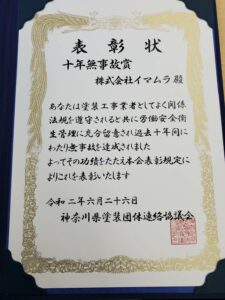 表彰状
十年無事故賞
株式会社イマムラ 殿
あなたは塗装工事業者としてよく関係
法規を遵守されると共に労働安全衛
生管理に充分留意され過去十年間に
わたり無事故を達成されました
よってその功績をたたえ本会表彰規定に
よりこれを表彰いたします
令和二年六月二十六日
神奈川県塗装団体連絡協議会